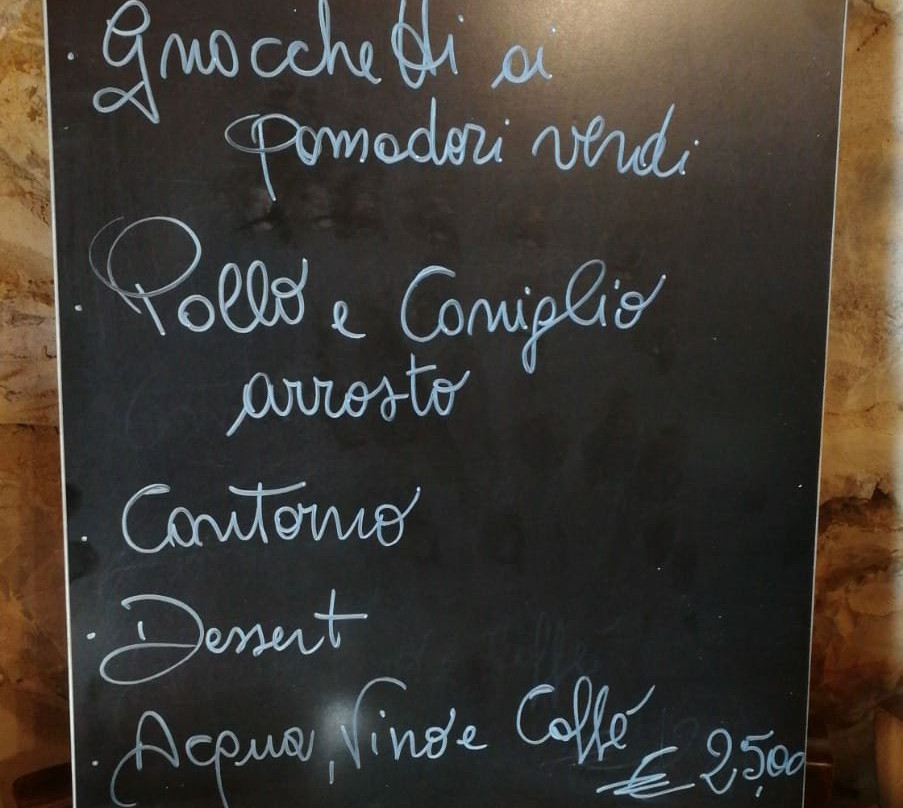 · Gnocchetti ai
pomodori verdi
· Pollo e Coniglio
arrosto
· Contorno
· Dessert
· Acqua, Vino e Caffé
€ 25,00